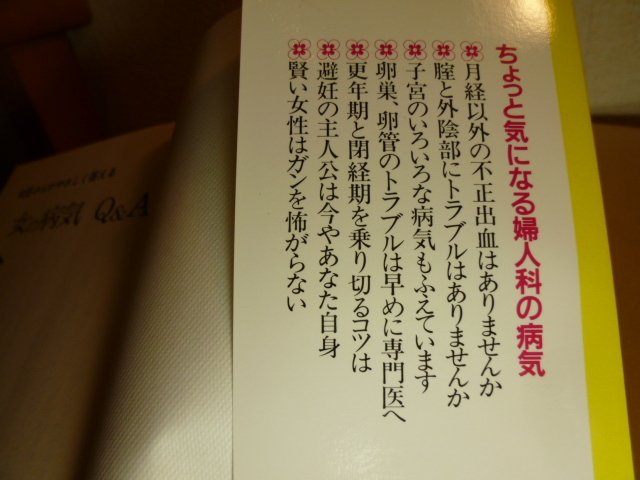 ちょっと気になる婦人科の病気
月経以外の不正出血はありませんか
腟と外陰部にトラブルはありませんか
子宮のいろいろな病気もふえています
卵巣、卵管のトラブルは早めに専門医へ
更年期と閉経期を乗り切るコツは
避妊の主人公は今やあなた自身
賢い女性はガンを怖がらない
女の病気 Q&A